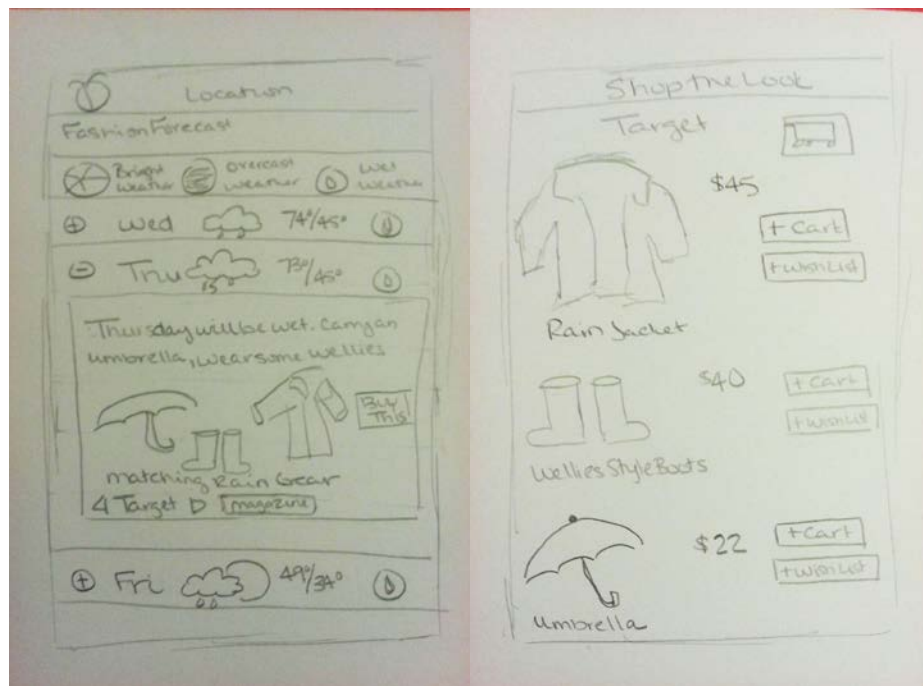 Location
Fashion Forecast
Bright weather
overcast weather
wet weather
+ Wed 74°/45°
- Thu 73°/45°
Thursday will be wet. Carry an
umbrella, wear some wellies
Buy This
matching Rain Gear
Target magazine
+ Fri 49°/34°
Shop the Look
Target
$45
+ Cart
+ Wish List
Rain Jacket
$40
+ Cart
+ Wish List
Wellies Style Boots
$22
+ Cart
+ Wish List
umbrella